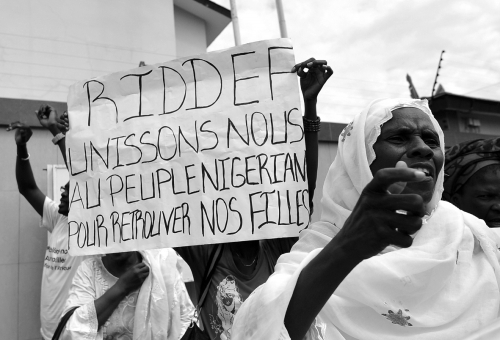 RIDDEF
UNISSONS NOUS
AU PEUPLE NIGERIAN
POUR RETROUVER NOS FILLES